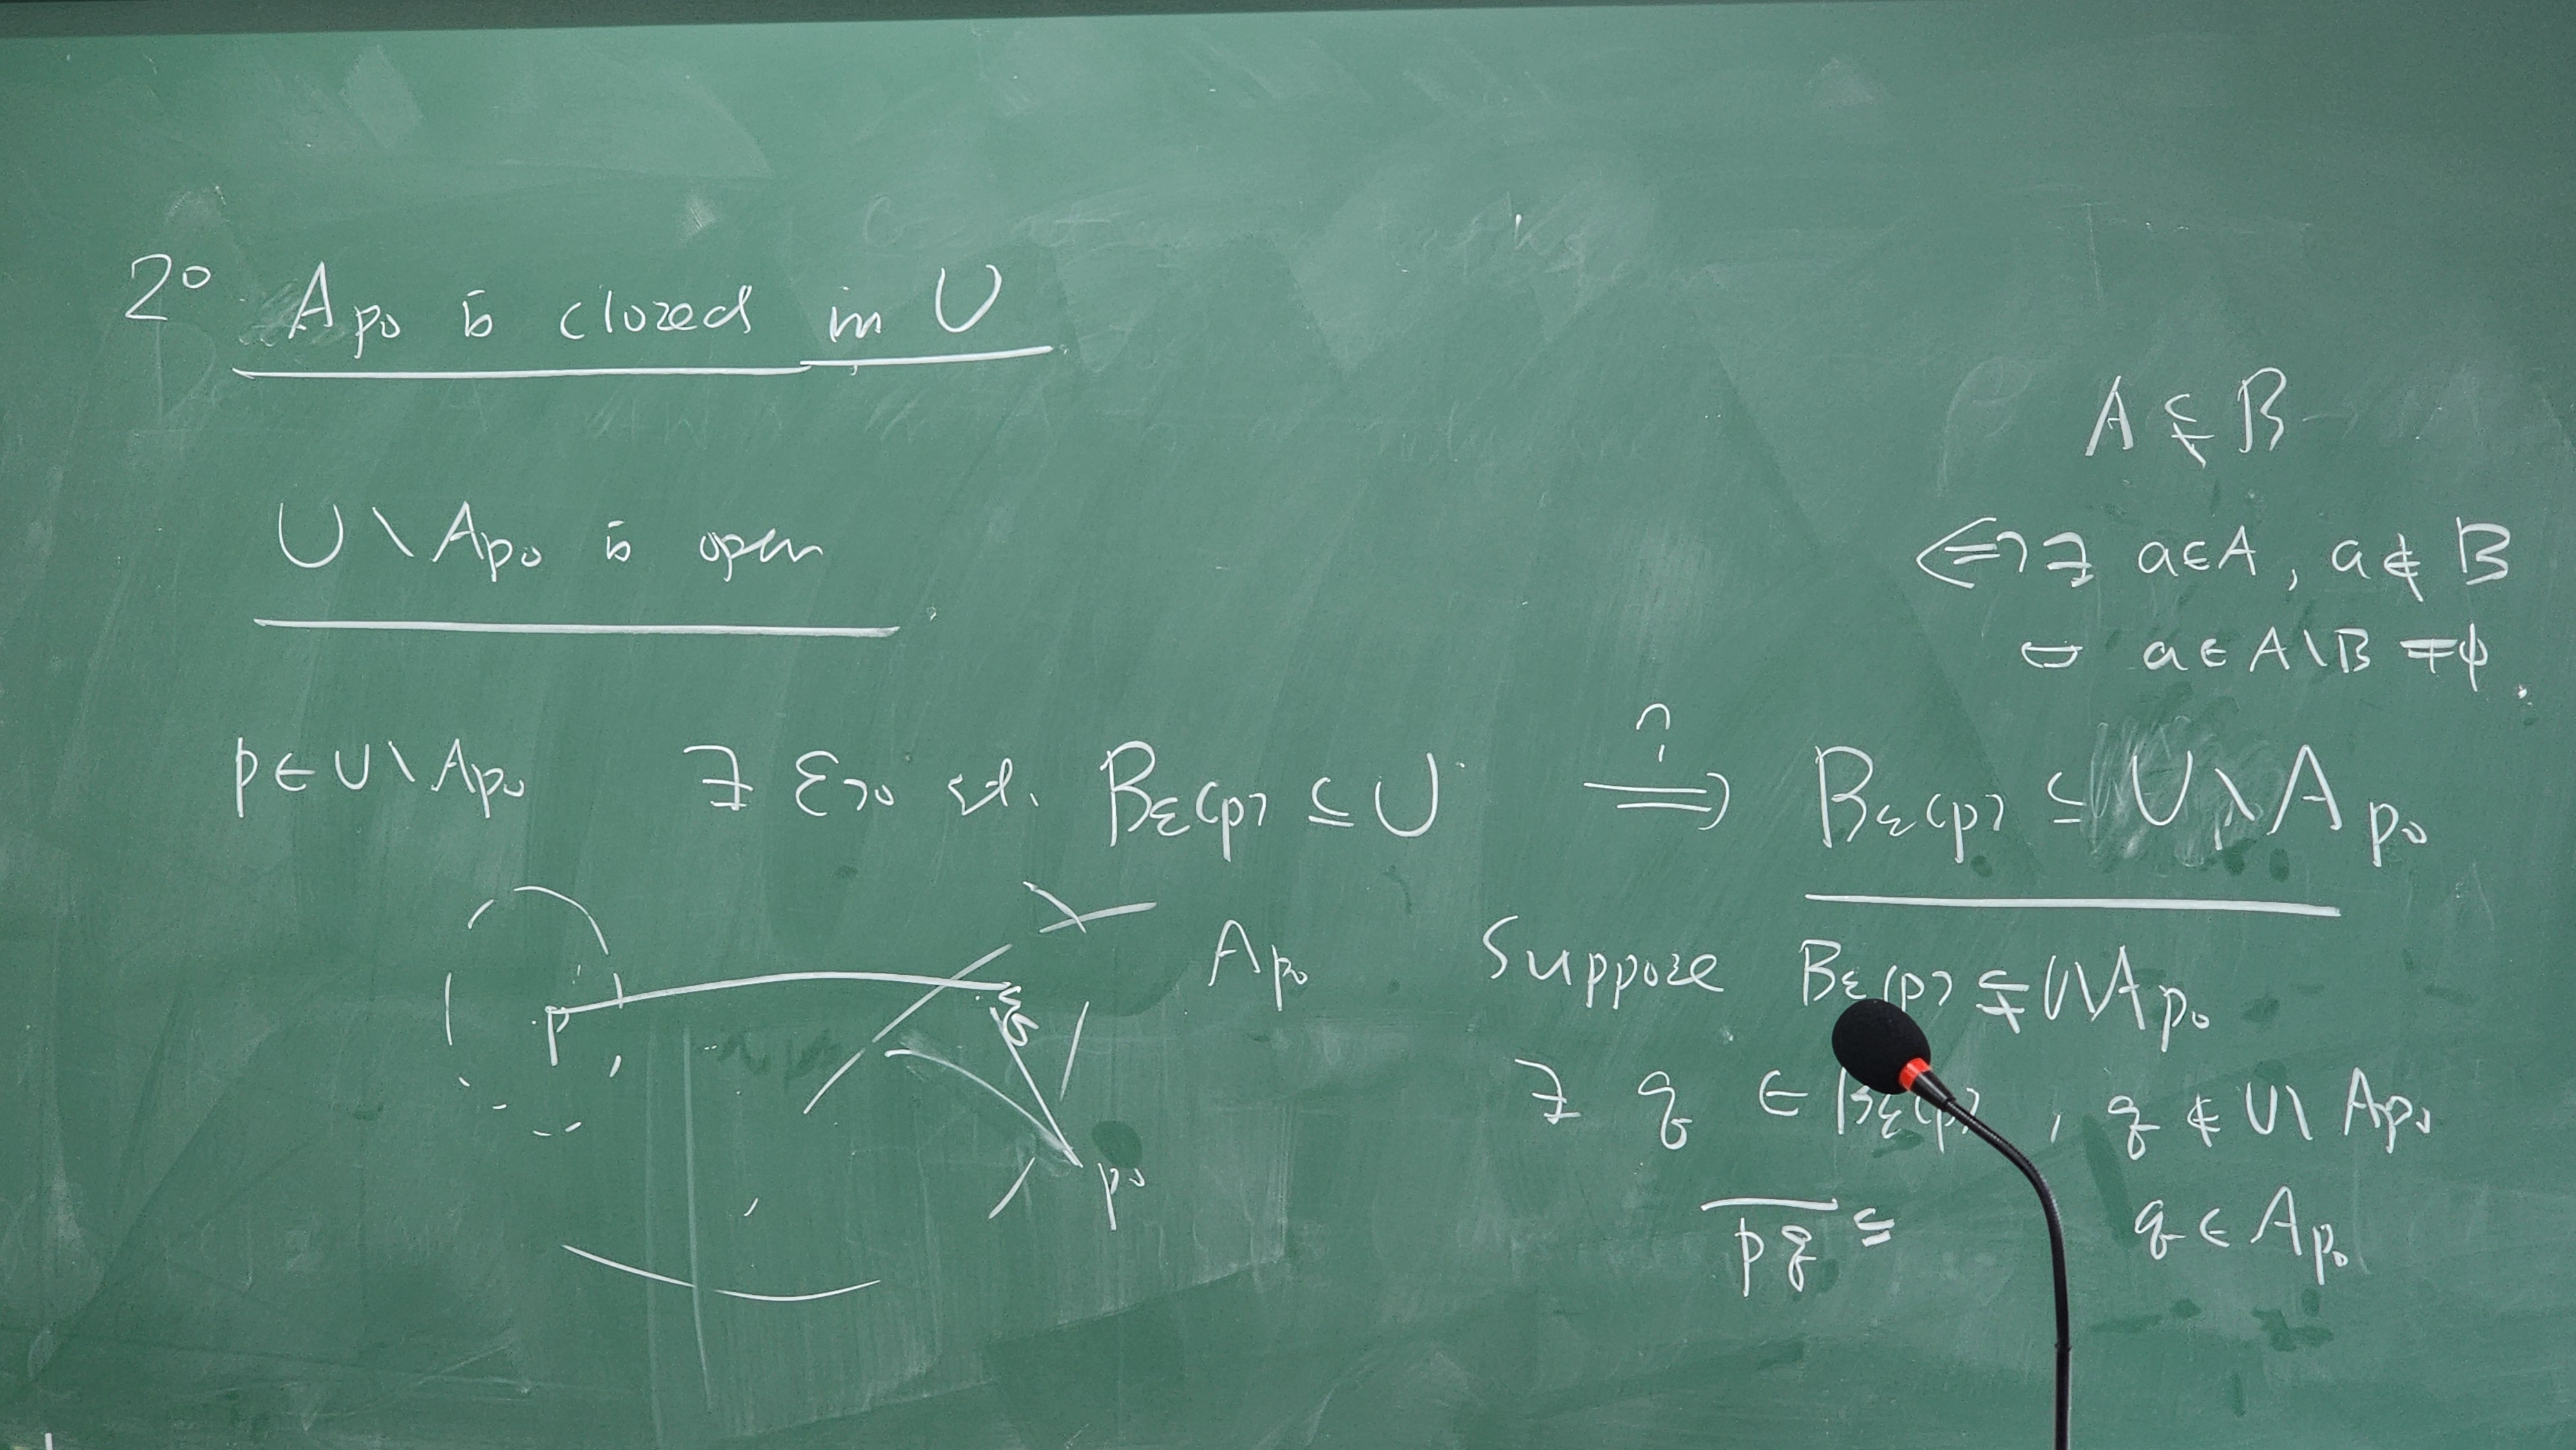 2° A_{p_0} is closed in U
A ⊊ B
U \ A_{p_0} is open
⟺ ∃ a∈A, a∉B
⇔ a∈A\B ≠ ϕ.
p∈U\A_{p_0} ∃ ε>0 st. B_ε(p) ⊆ U ⟹ B_ε(p) ⊆ U\A_{p_0}
?
A_{p_0}
Suppose B_ε(p) ⊊ U\A_{p_0}
p
∃ q ∈ B_ε(p), q ∉ U\A_{p_0}
p_0
\overline{pq} ⊆ q ∈ A_{p_0}